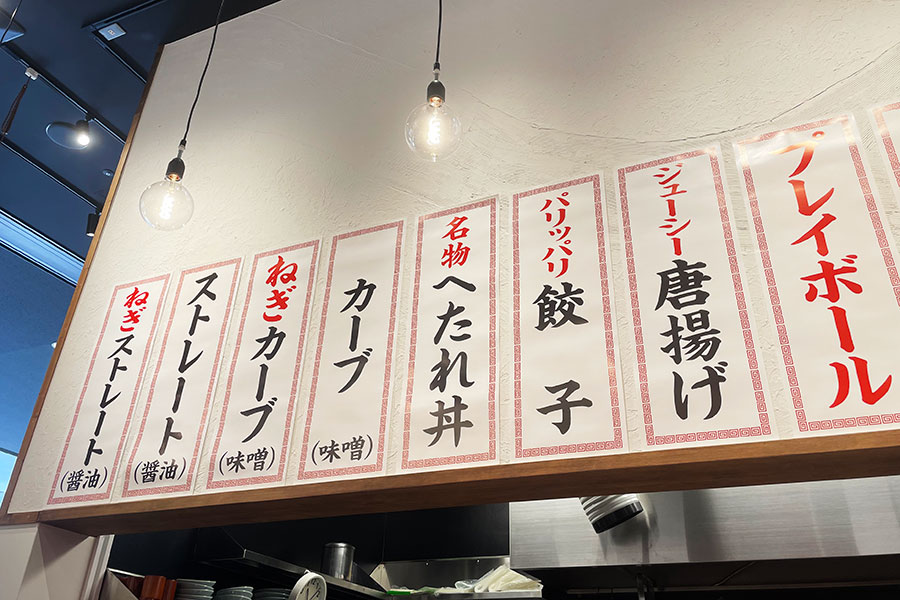 プレイボール
ジューシー唐揚げ
パリッパリ餃子
名物へたれ丼
カーブ
(味噌)
ねぎカーブ
(味噌)
ストレート
(醤油)
ねぎストレート
(醤油)